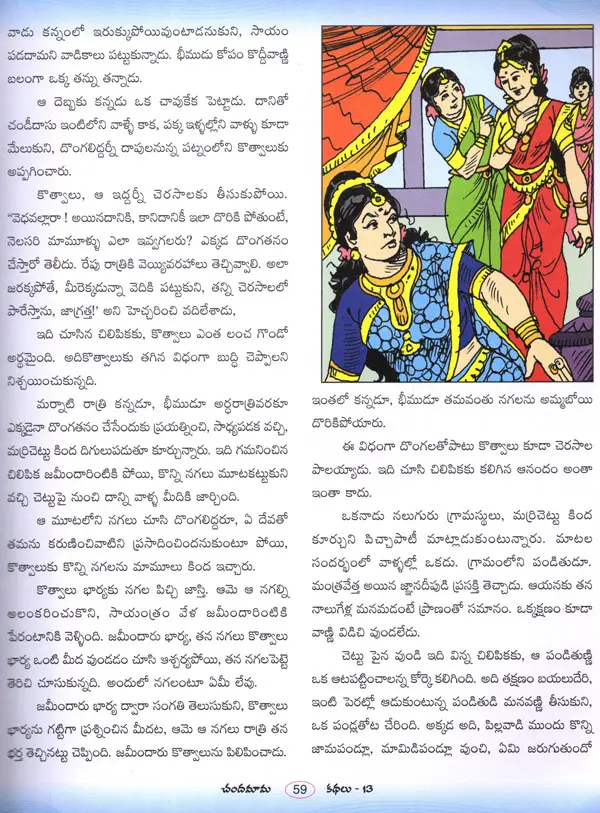 వాడు కన్నంలో ఇరుక్కుపోయివుంటాడనుకుని, సాయం
పడదామని వాడికాలు పట్టుకున్నాడు. భీముడు కోపం కొద్దీవాణ్ణి
బలంగా ఒక్క తన్ను తన్నాడు.
ఆ దెబ్బకు కన్నడు ఒక చావుకేక పెట్టాడు. దానితో
చండీదాసు ఇంటిలోని వాళ్ళే కాక, పక్క ఇళ్ళల్లోని వాళ్ళు కూడా
మేలుకుని, దొంగలిద్దర్నీ దాపులనున్న పట్నంలోని కొత్వాలుకు
అప్పగించారు.
కొత్వాలు, ఆ ఇద్దర్నీ చెరసాలకు తీసుకుపోయి.
"వెధవల్లారా ! అయినదానికి, కానిదానికీ ఇలా దొరికి పోతుంటే,
నెలసరి మామూళ్ళు ఎలా ఇవ్వగలరు? ఎక్కడ దొంగతనం
చేస్తారో తెలీదు. రేపు రాత్రికి వెయ్యివరహాలు తెచ్చివ్వాలి. అలా
జరక్కపోతే, మీరెక్కడున్నా వెదికి పట్టుకుని, తన్ని చెరసాలలో
పారేస్తాను, జాగ్రత్త!' అని హెచ్చరించి వదిలేశాడు,
ఇది చూసిన చిలిపికకు, కొత్వాలు ఎంత లంచ గొండో
అర్థమైంది. అదికొత్వాలుకు తగిన విధంగా బుద్ధి చెప్పాలని
నిశ్చయించుకున్నది.
మర్నాటి రాత్రి కన్నడూ, భీముడూ అర్ధరాత్రివరకూ
ఎక్కడైనా దొంగతనం చేసేందుకు ప్రయత్నించి, సాధ్యపడక వచ్చి,
మర్రిచెట్టు కింద దిగులుపడుతూ కూర్చున్నారు. ఇది గమనించిన
చిలిపిక జమీందారింటికి పోయి, కొన్ని నగలు మూటకట్టుకుని
వచ్చి చెట్టుపై నుంచి దాన్ని వాళ్ళ మీదికి జార్చింది.
ఆ మూటలోని నగలు చూసి దొంగలిద్దరూ, ఏ దేవతో
తమను కరుణించివాటిని ప్రసాదించిందనుకుంటూ పోయి,
కొత్వాలుకు కొన్ని నగలను మామూలు కింద ఇచ్చారు.
కొత్వాలు భార్యకు నగల పిచ్చి జాస్తి. ఆమె ఆ నగల్ని
అలంకరించుకొని, సాయంత్రం వేళ జమీందారింటికి
పేరంటానికి వెళ్ళింది. జమీందారు భార్య, తన నగలు కొత్వాలు
భార్య ఒంటి మీద వుండడం చూసి ఆశ్చర్యపోయి, తన నగలపెట్టె
తెరిచి చూసుకున్నది. అందులో నగలంటూ ఏమీ లేవు.
జమీందారు భార్య ద్వారా సంగతి తెలుసుకుని, కొత్వాలు
భార్యను గట్టిగా ప్రశ్నించిన మీదట, ఆమె ఆ నగలు రాత్రి తన
భర్త తెచ్చినట్టు చెప్పింది. జమీందారు కొత్వాలును పిలిపించాడు.
ఇంతలో కన్నడూ, భీముడూ తమవంతు నగలను అమ్మబోయి
దొరికిపోయారు.
ఈ విధంగా దొంగలతోపాటు కొత్వాలు కూడా చెరసాల
పాలయ్యాడు. ఇది చూసి చిలిపికకు కలిగిన ఆనందం అంతా
ఇంతా కాదు.
ఒకనాడు నలుగురు గ్రామస్థులు, మర్రిచెట్టు కింద
కూర్చుని పిచ్చాపాటీ మాట్లాడుకుంటున్నారు. మాటల
సందర్భంలో వాళ్ళల్లో ఒకడు. గ్రామంలోని పండితుడూ.
మంత్రవేత్త అయిన జ్ఞానదీపుడి ప్రసక్తి తెచ్చాడు. ఆయనకు తన
నాలుగేళ్ల మనమడంటే ప్రాణంతో సమానం. ఒక్కక్షణం కూడా
వాణ్ణి విడిచి వుండలేడు.
చెట్టు పైన వుండి ఇది విన్న చిలిపికకు, ఆ పండితుణ్ణి
ఒక ఆటపట్టించాలన్న కోర్కె కలిగింది. అది తక్షణం బయలుదేరి,
ఇంటి పెరట్లో ఆడుకుంటున్న పండితుడి మనవణ్ణి తీసుకుని,
ఒక పండ్లతోట చేరింది. అక్కడ అది, పిల్లవాడి ముందు కొన్ని
జామపండ్లూ, మామిడిపండ్లూ వుంచి, ఏమి జరుగుతుందో
చందమామ 59 కథలు - 13